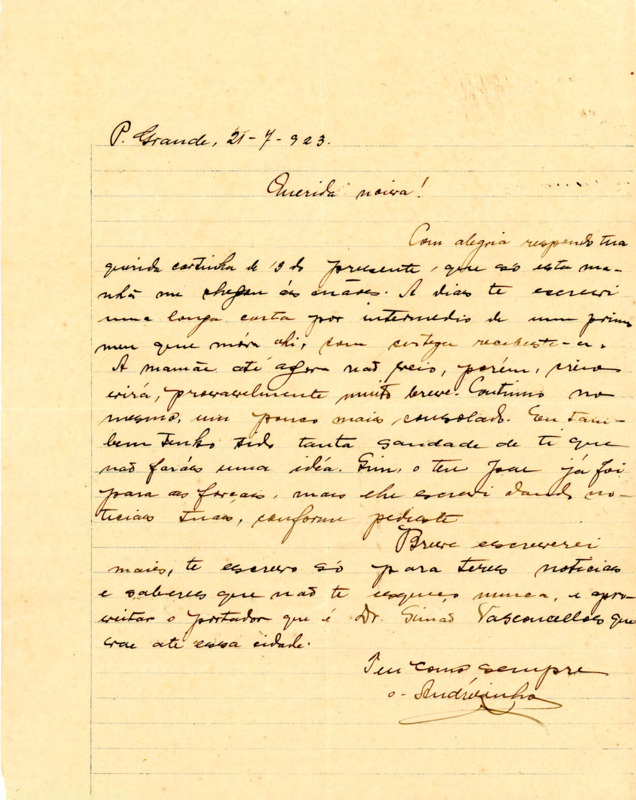 P. Grande, 21-7-923.
Querida noiva!
Com alegria respondo tua
querida cartinha de 19 do presente, que só esta ma-
nhã me chegou ás mãos. A dias te escrevi
uma longa carta por intermedio de um primo
meu que móra ahi, com certeza recebeste-a.
A mamãe até agora não veio, porém, creio
virá, provavelmente muito breve. Continuo no
mesmo, um pouco mais consolado. Eu tam-
bem tenho tido tanta saudade de ti que
não farás uma idéa. Sim, o teu pae já foi
para as forças, mais lhe escrevi dando no-
ticias tuas, conforme pediste
Breve escreverei
mais, te escrevo só para teres noticias
e saberes que não te esqueço nunca, e apro-
veitar o portador que é Dr. Simão Vasconcellos que
vae até essa cidade.
Teu como sempre
o - Andrézinho